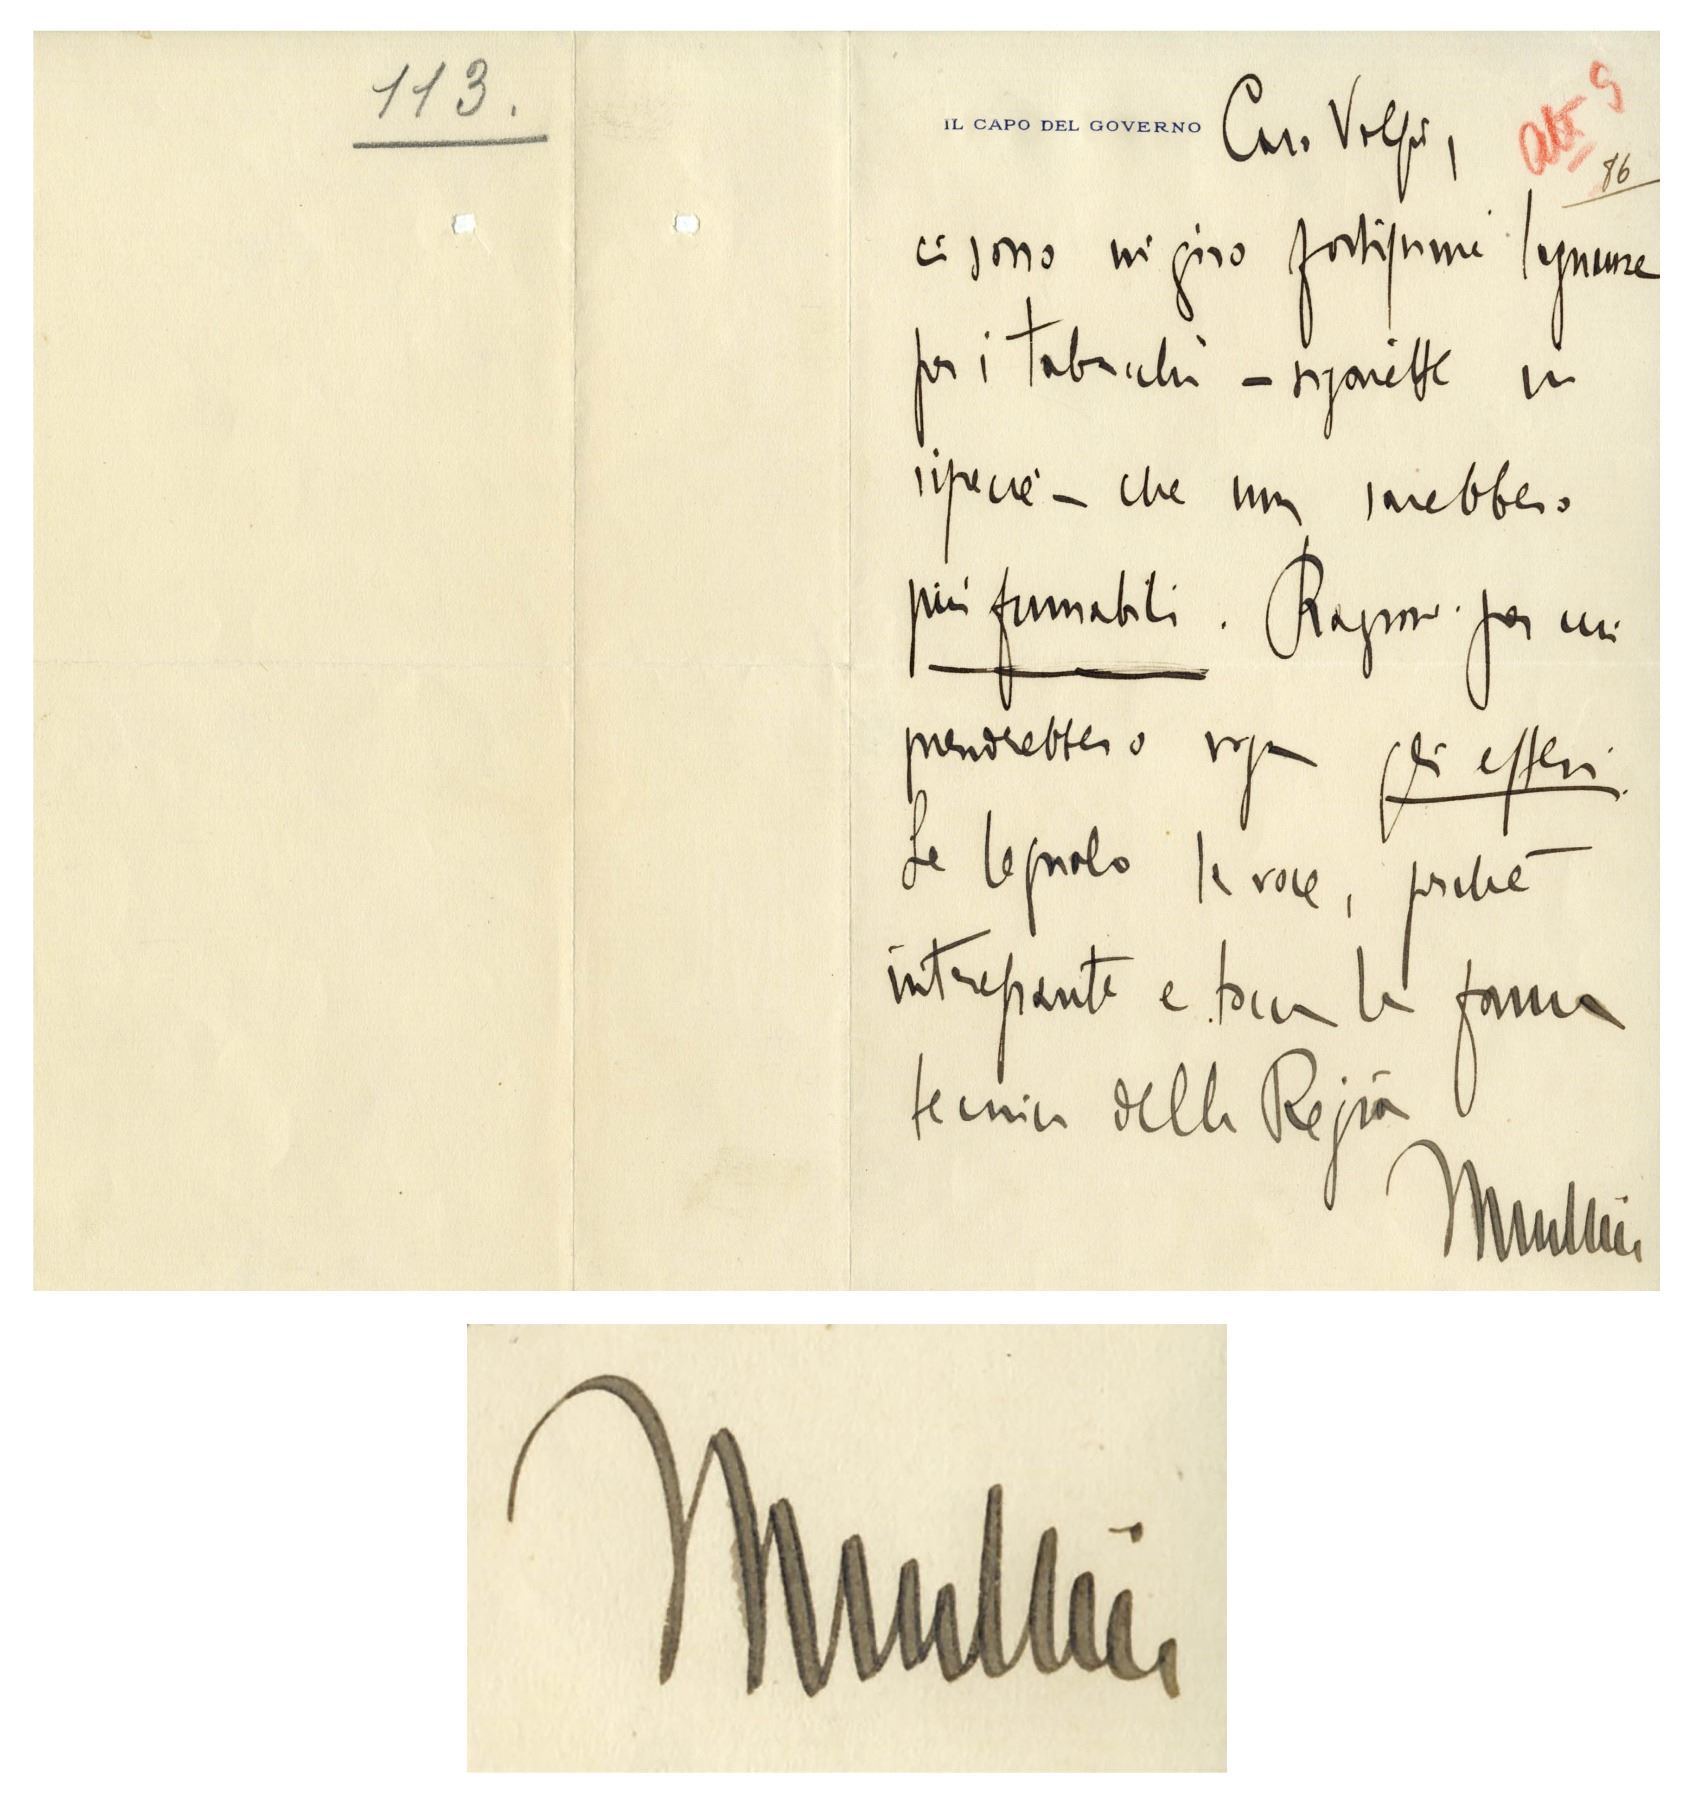 113.
IL CAPO DEL GOVERNO
Caro Volpi,
86
ci sono in giro fortissime lagnanze
per i tabacchi – sigarette in
ispecie – che non sarebbero
più fumabili. Ragion per cui
prenderebbero voga gli esteri.
Le segnalo la voce, perchè
interessante e tocca la fama
tecnica della Regia
Mussolini
Mussolini